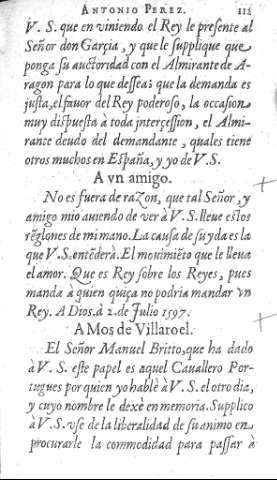 ANTONIO PEREZ. 112
V. S. que en viniendo el Rey le presente al
Señor don Garçia, y que le supplique que
ponga su auctoridad con el Almirante de A-
ragon para lo que dessea: que la demanda es
justa, el fauor del Rey poderoso, la occasion
muy dispuesta à toda jntercession, el Almi-
rante deudo del demandante, quales tiene
otros muchos en España, y yo de V. S.
A vn amigo.
No es fuera de razon, que tal Señor, y
amigo mio auiendo de ver à V. S. lleue estos
rēglones de mi mano. La causa de su yda es la
que V. S. entēderà. El mouimiēto que le lleua
el amor. Que es Rey sobre los Reyes, pues
manda à quien quiça no podria mandar vn
Rey. A Dios. à 2. de Julio 1597.
A Mos de Villaroel.
El Señor Manuel Britto, que ha dado
à V. S. este papel es aquel Cauallero Por-
tugues por quien yo hablè à V. S. el otro dia,
y cuyo nombre le dexè en memoria. Supplico
à V. S. vse de la liberalidad de su animo en
procurarle la commodidad para passar à